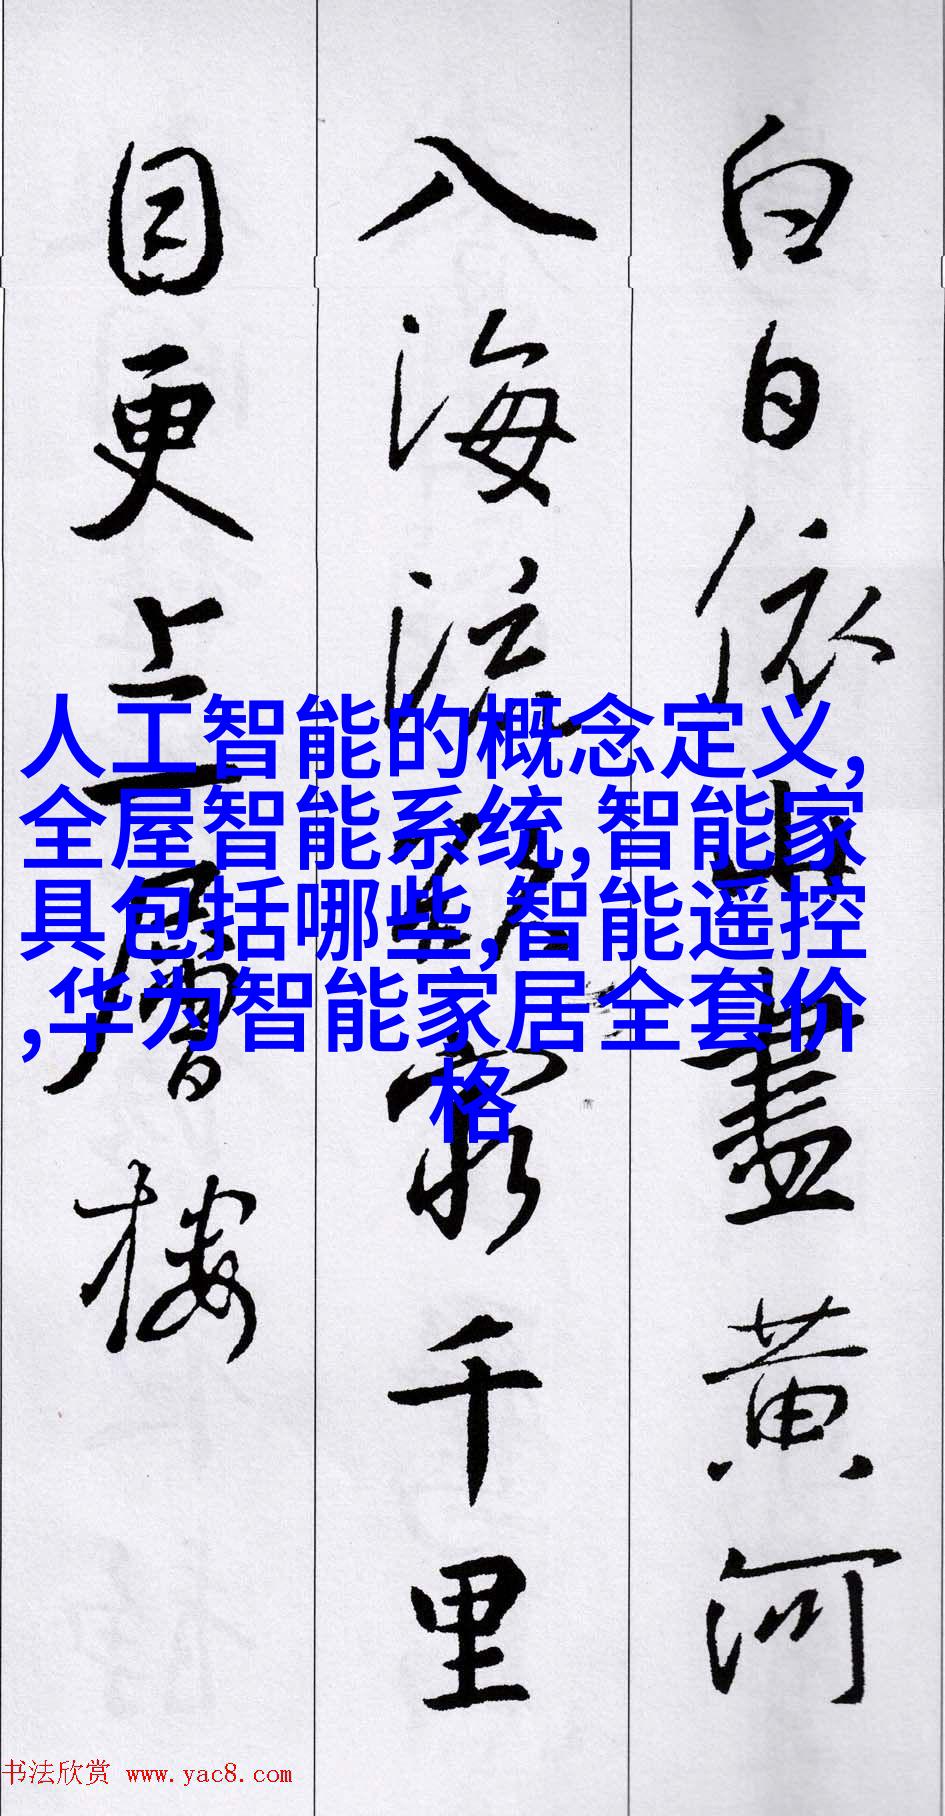 白日依山盡黄河
入海流欲窮千里
目更上一層樓
人工智能的概念定义,
全屋智能系统,智能家
具包括哪些,智能遥控
,华为智能家居全套价
格
书法欣赏 www.yac8.com